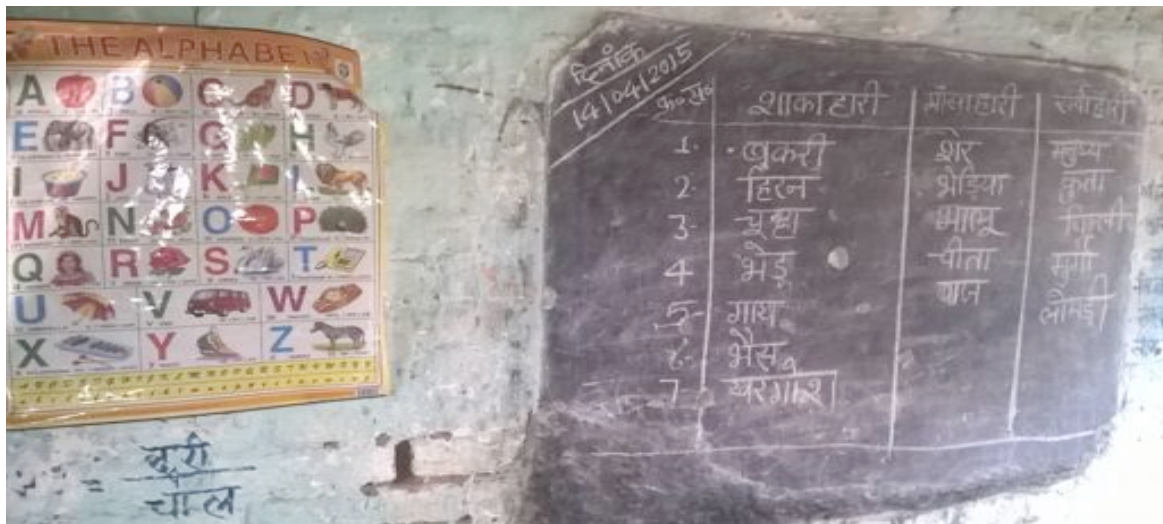 THE ALPHABET
A B C D
E F G H
I J K L
M N O P
Q R S T
U V W
X Y Z
= दूरी
चाल
दिनांक
14/04/2015
क्र०स० शाकाहारी माँसाहारी सर्वाहारी
1. बकरी शेर मनुष्य
2. हिरन भेड़िया कुत्ता
3. चूहा भालू बिल्ली
4 भेड़ चीता मुर्गा
5- गाय बाज लोमड़ी
6- भैंस
7- खरगोश